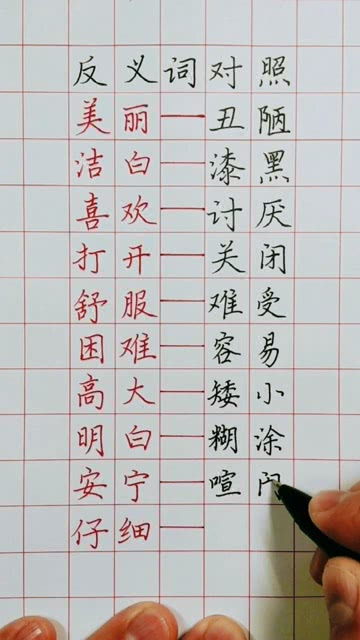 反义词对照
美丽——丑陋
洁白——漆黑
喜欢——讨厌
打开——关闭
舒服——难受
困难——容易
高大——矮小
明白——糊涂
安宁——喧
仔细——